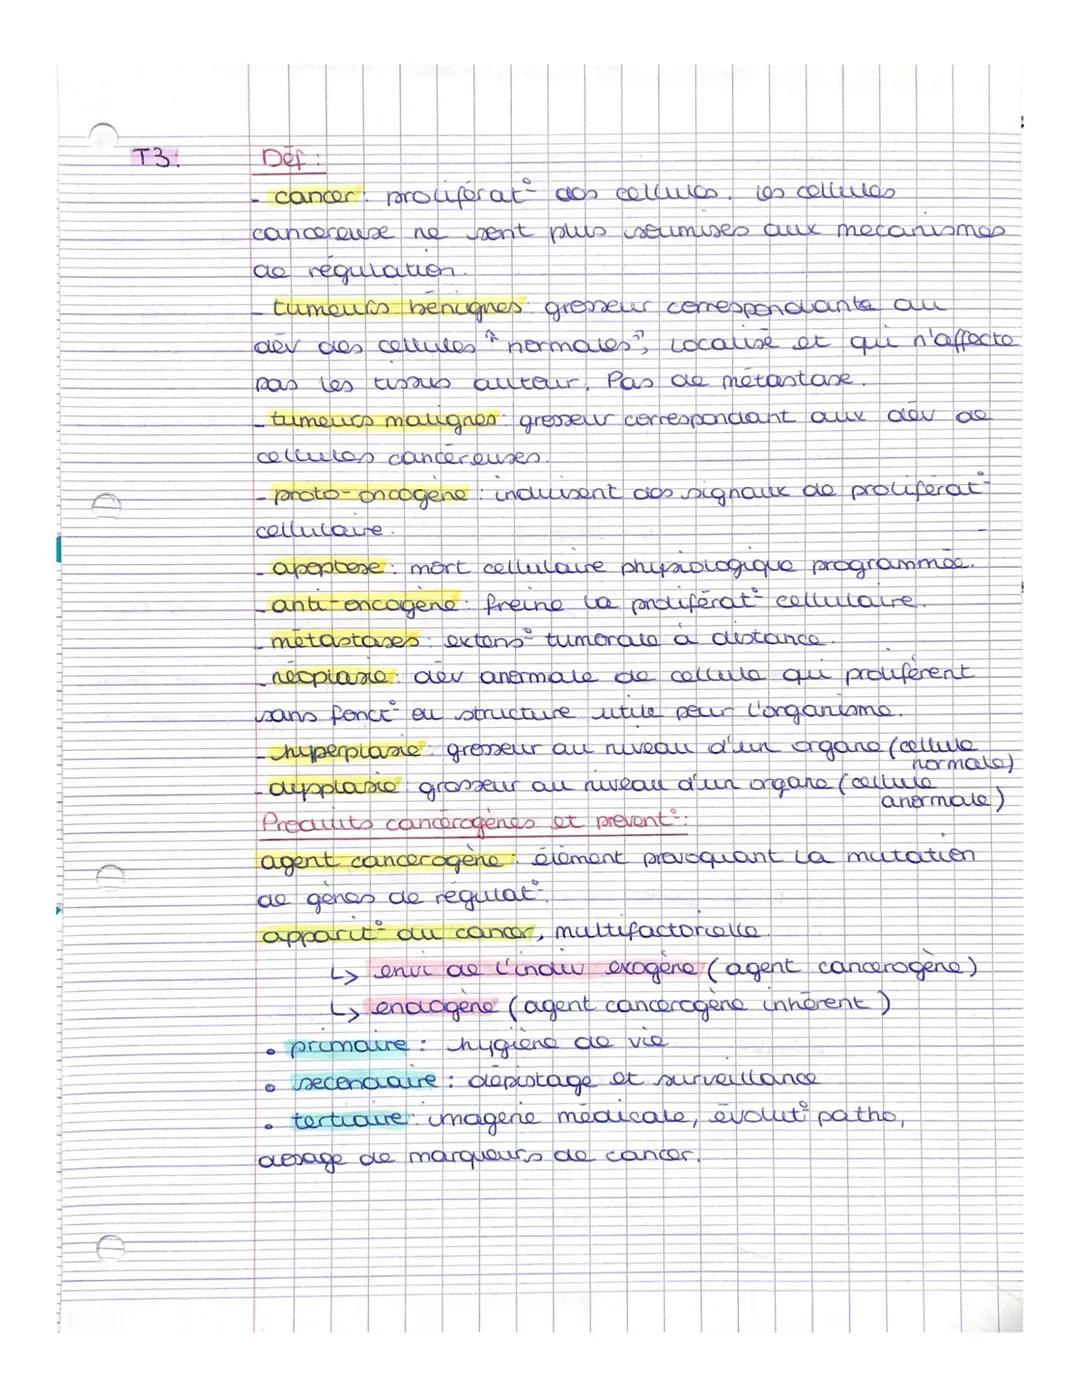 T3: Déf :
- cancer : proliférat° des cellules. Les cellules
cancereuse ne sont plus soumises aux mécanismes
de régulation.
- tumeurs bénignes : grosseur correspondante au
dév des cellules "normales", localisé et qui n'affecte
pas les tissus autour. Pas de métastase.
- tumeurs malignes : grosseur correspondant aux dév de
cellules cancéreuses.
- proto-oncogène : induisent des signaux de proliférat°
cellulaire.
- apoptose : mort cellulaire physiologique programmée.
- anti-oncogène : freine la proliférat° cellulaire.
- métastases : extens° tumorale à distance.
- néoplasie : dév anormale de cellule qui prolifèrent
sans fonct° ou structure utile pour l'organisme.
- hyperplasie : grosseur au niveau d'un organe (cellule
normale)
- dysplasie : grosseur au niveau d'un organe (cellule
anormale)
Produits cancérogènes et prévent° :
agent cancerogène : élément provoquant la mutation
de gènes de régulat°.
apparit° du cancer, multifactorielle.
↳ envi de l'indiv exogène (agent cancerogène)
↳ endogène (agent cancerogène inhérent)
• primaire : hygiène de vie
• secondaire : dépistage et surveillance
• tertiaire : imagerie médicale, évolut° patho,
dosage de marqueurs de cancer.